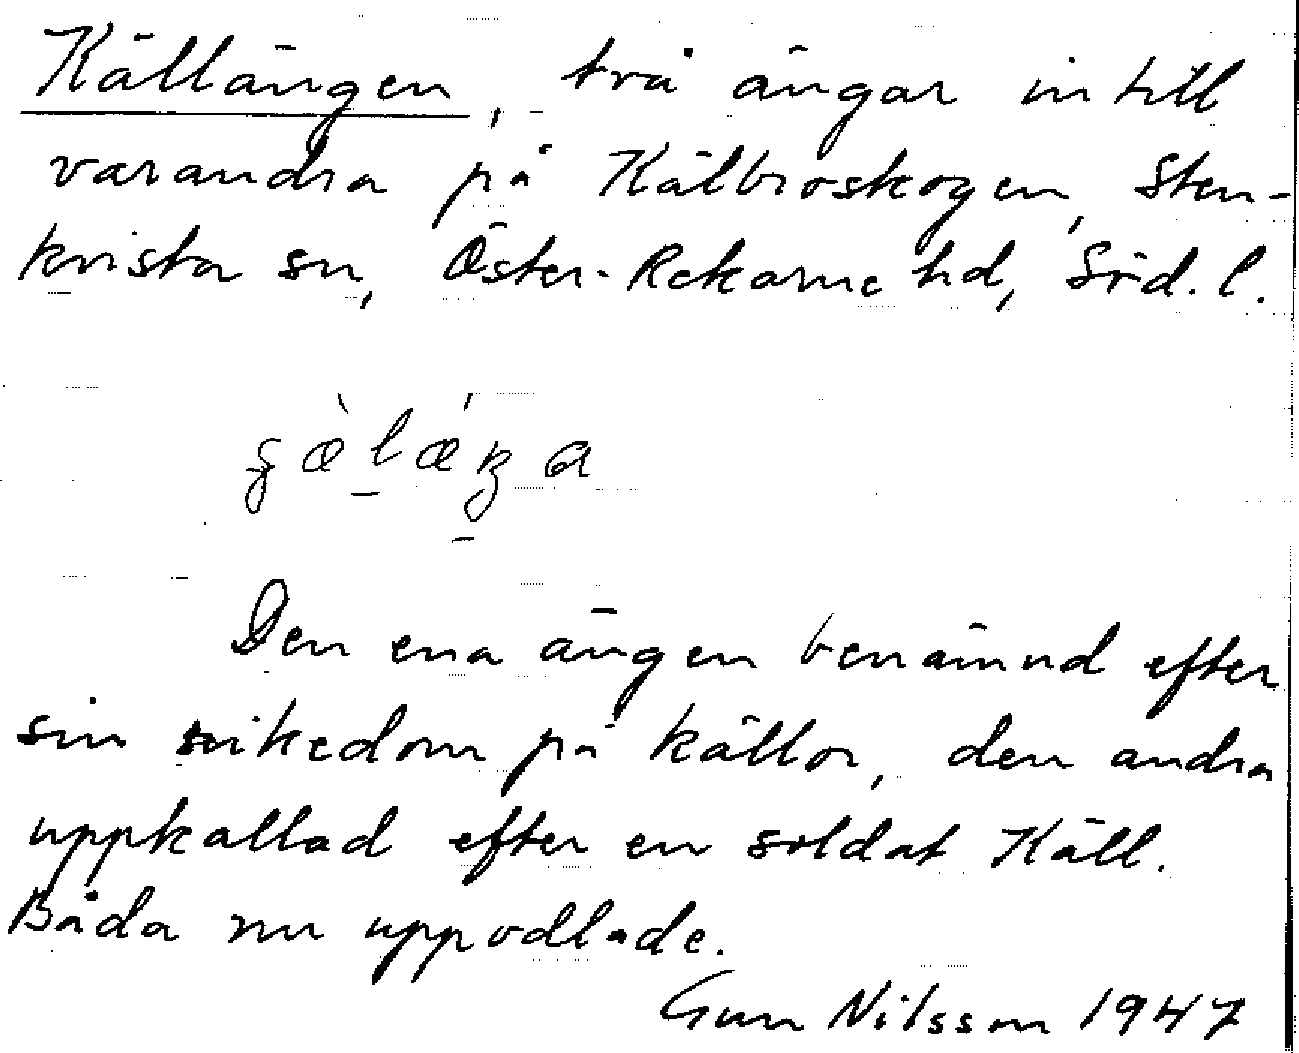 Källängen, två ängar intill
varandra på Kälbroskogen, Sten-
kvista sn, Öster-Rekarne hd, Söd. l.
Den ena ängen benämnd efter
sin rikedom på källor, den andra
uppkallad efter en soldat Käll.
Båda nu uppodlade.
Gun Nilsson 1947